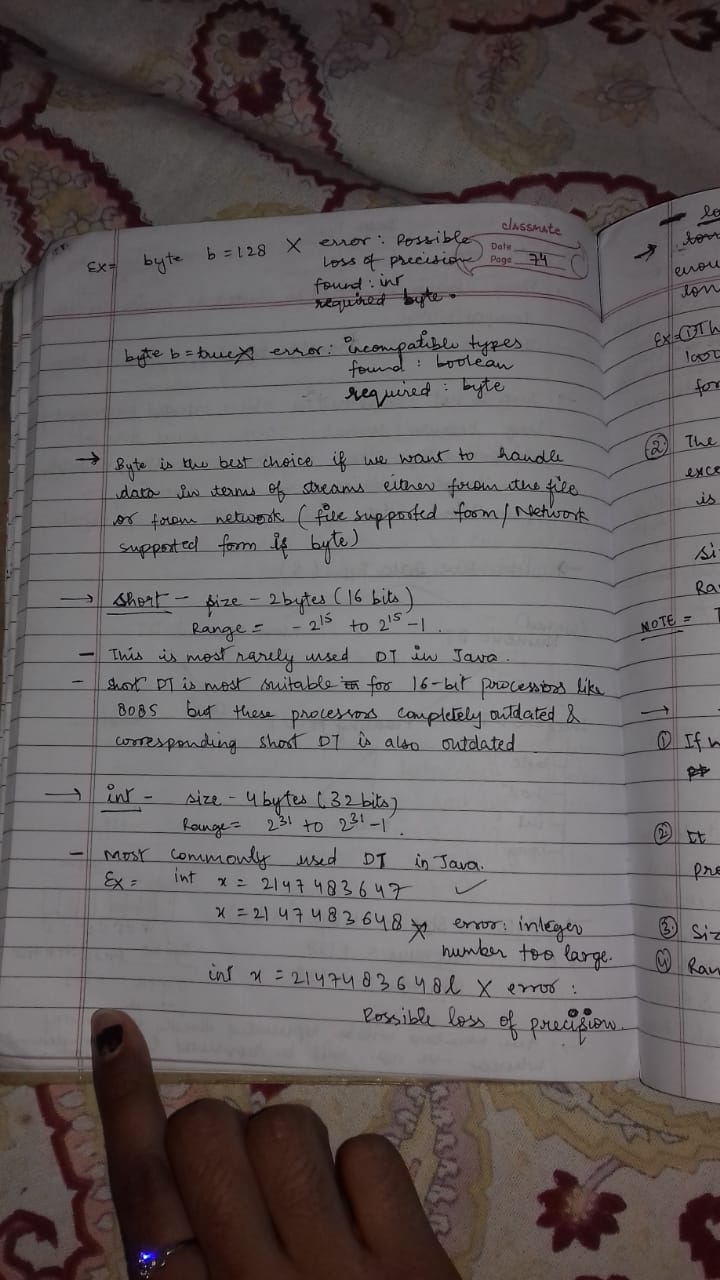 classmate
Date
Page 74
Ex= byte b = 128 X error: Possible
loss of precision
found: int
required byte.
byte b = true X error: incompatible types
found: boolean
required: byte
→ Byte is the best choice if we want to handle
data in terms of streams either from the file
or from network (file supported form/Network
supported form is byte)
→ short - size - 2 bytes (16 bits)
Range = -2^15 to 2^15-1.
- This is most rarely used DT in Java.
- short DT is most suitable for 16-bit processors like
8085 but these processors completely outdated &
corresponding short DT is also outdated
→ int - size - 4 bytes (32 bits)
Range= 2^31 to 2^31-1.
- Most commonly used DT in Java.
Ex= int x = 2147483647 ✓
x = 2147483648 X error: integer
number too large.
int x = 2147483648l X error:
Possible loss of precision.
→
lon
Ex=
for
② The
exce
is
si
Ra
NOTE =
→
① If
② It
pre
③ Siz
④ Ran